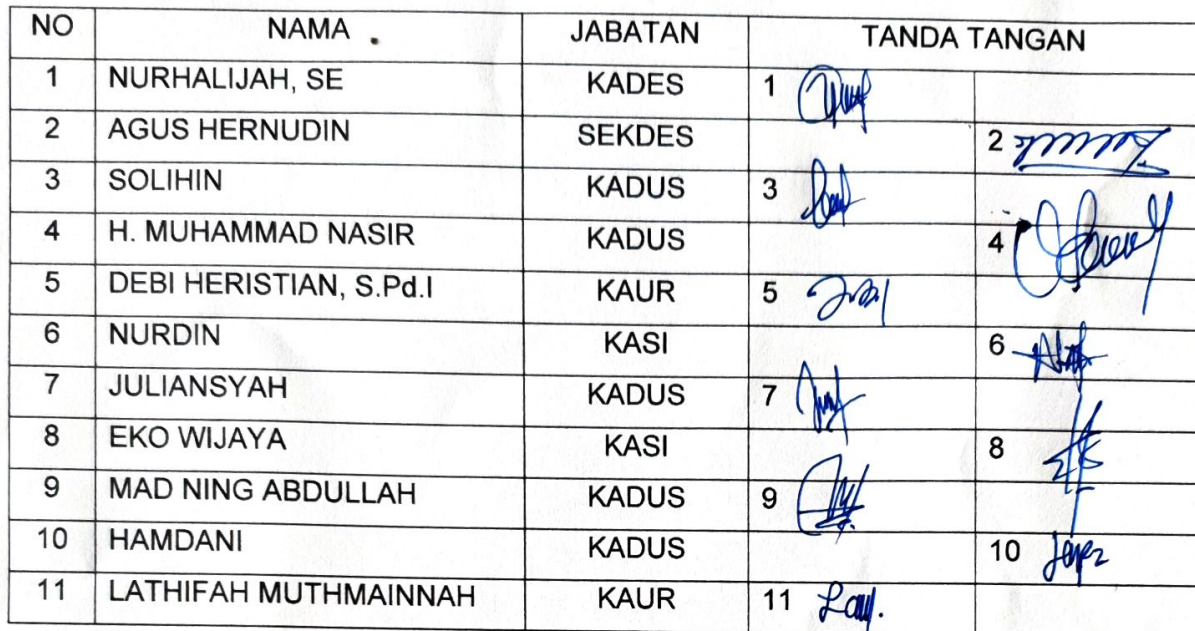 NO NAMA JABATAN TANDA TANGAN
1 NURHALIJAH, SE KADES 1
2 AGUS HERNUDIN SEKDES 2
3 SOLIHIN KADUS 3
4 H. MUHAMMAD NASIR KADUS 4
5 DEBI HERISTIAN, S.Pd.I KAUR 5
6 NURDIN KASI 6
7 JULIANSYAH KADUS 7
8 EKO WIJAYA KASI 8
9 MAD NING ABDULLAH KADUS 9
10 HAMDANI KADUS 10
11 LATHIFAH MUTHMAINNAH KAUR 11